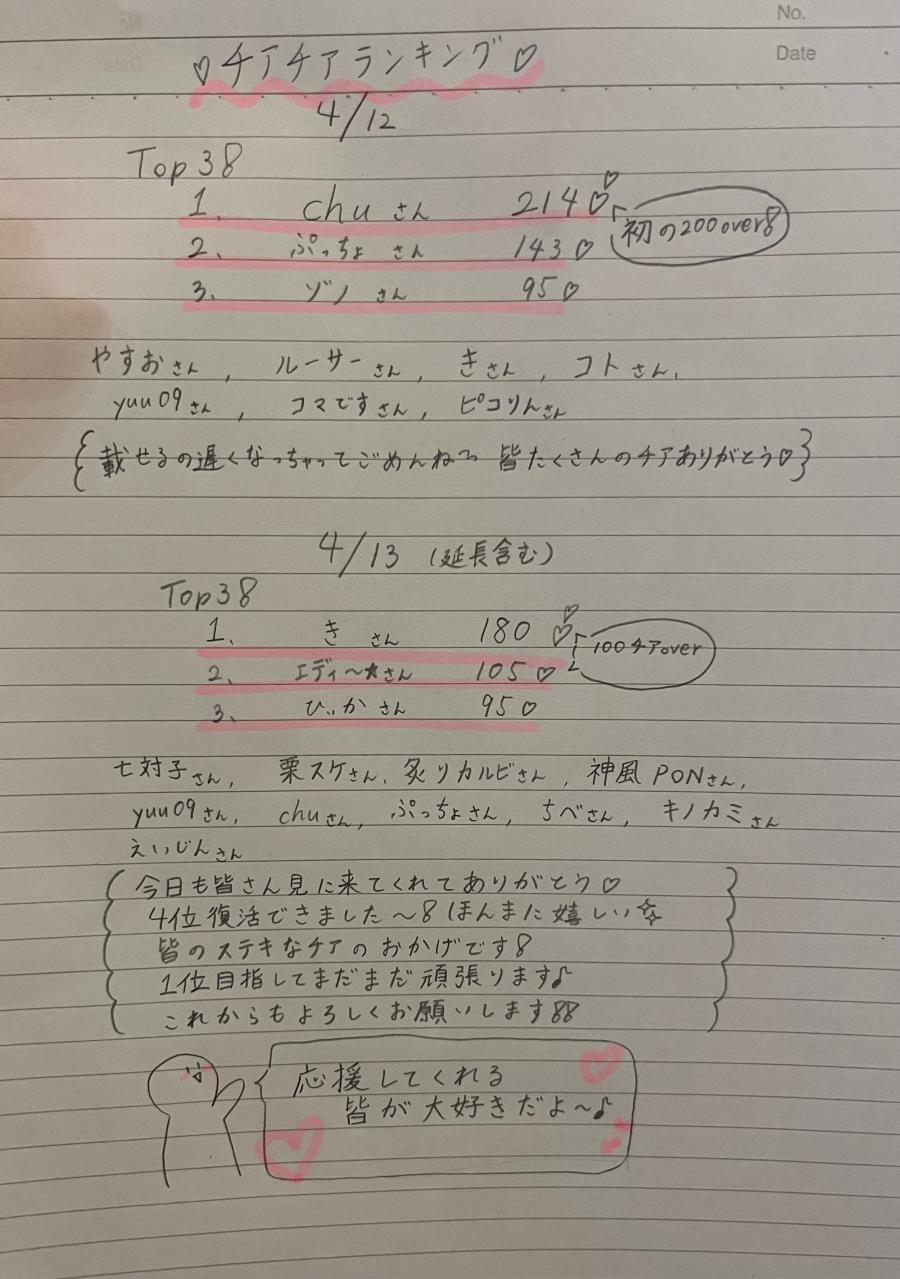 No.
Date
♡チアチアランキング♡
4/12
Top38
1. chuさん 214♡♡ 初の200over8
2. ぷっちょさん 143♡
3. ゾノさん 95♡
やすおさん, ルーサーさん, きさん, コトさん,
yuu09さん, コマですさん, ピコりんさん
{載せるの遅くなっちゃってごめんね〜 皆たくさんのチアありがとう♡}
4/13 (延長含む)
Top38
1. きさん 180♡♡ 100チアover
2. エディ〜★さん 105♡
3. ぴぃかさん 95♡
七対子さん, 栗スケさん, 炙りカルビさん, 神風PONさん,
yuu09さん, chuさん, ぷっちょさん, ちべさん, キノカミさん
えいじんさん
今日も皆さん見に来てくれてありがとう♡
4位復活できました〜8 ほんまに嬉しい☆
皆のステキなチアのおかげです8
1位目指してまだまだ頑張ります♪
これからもよろしくお願いします88
応援してくれる
皆が大好きだよ〜♪